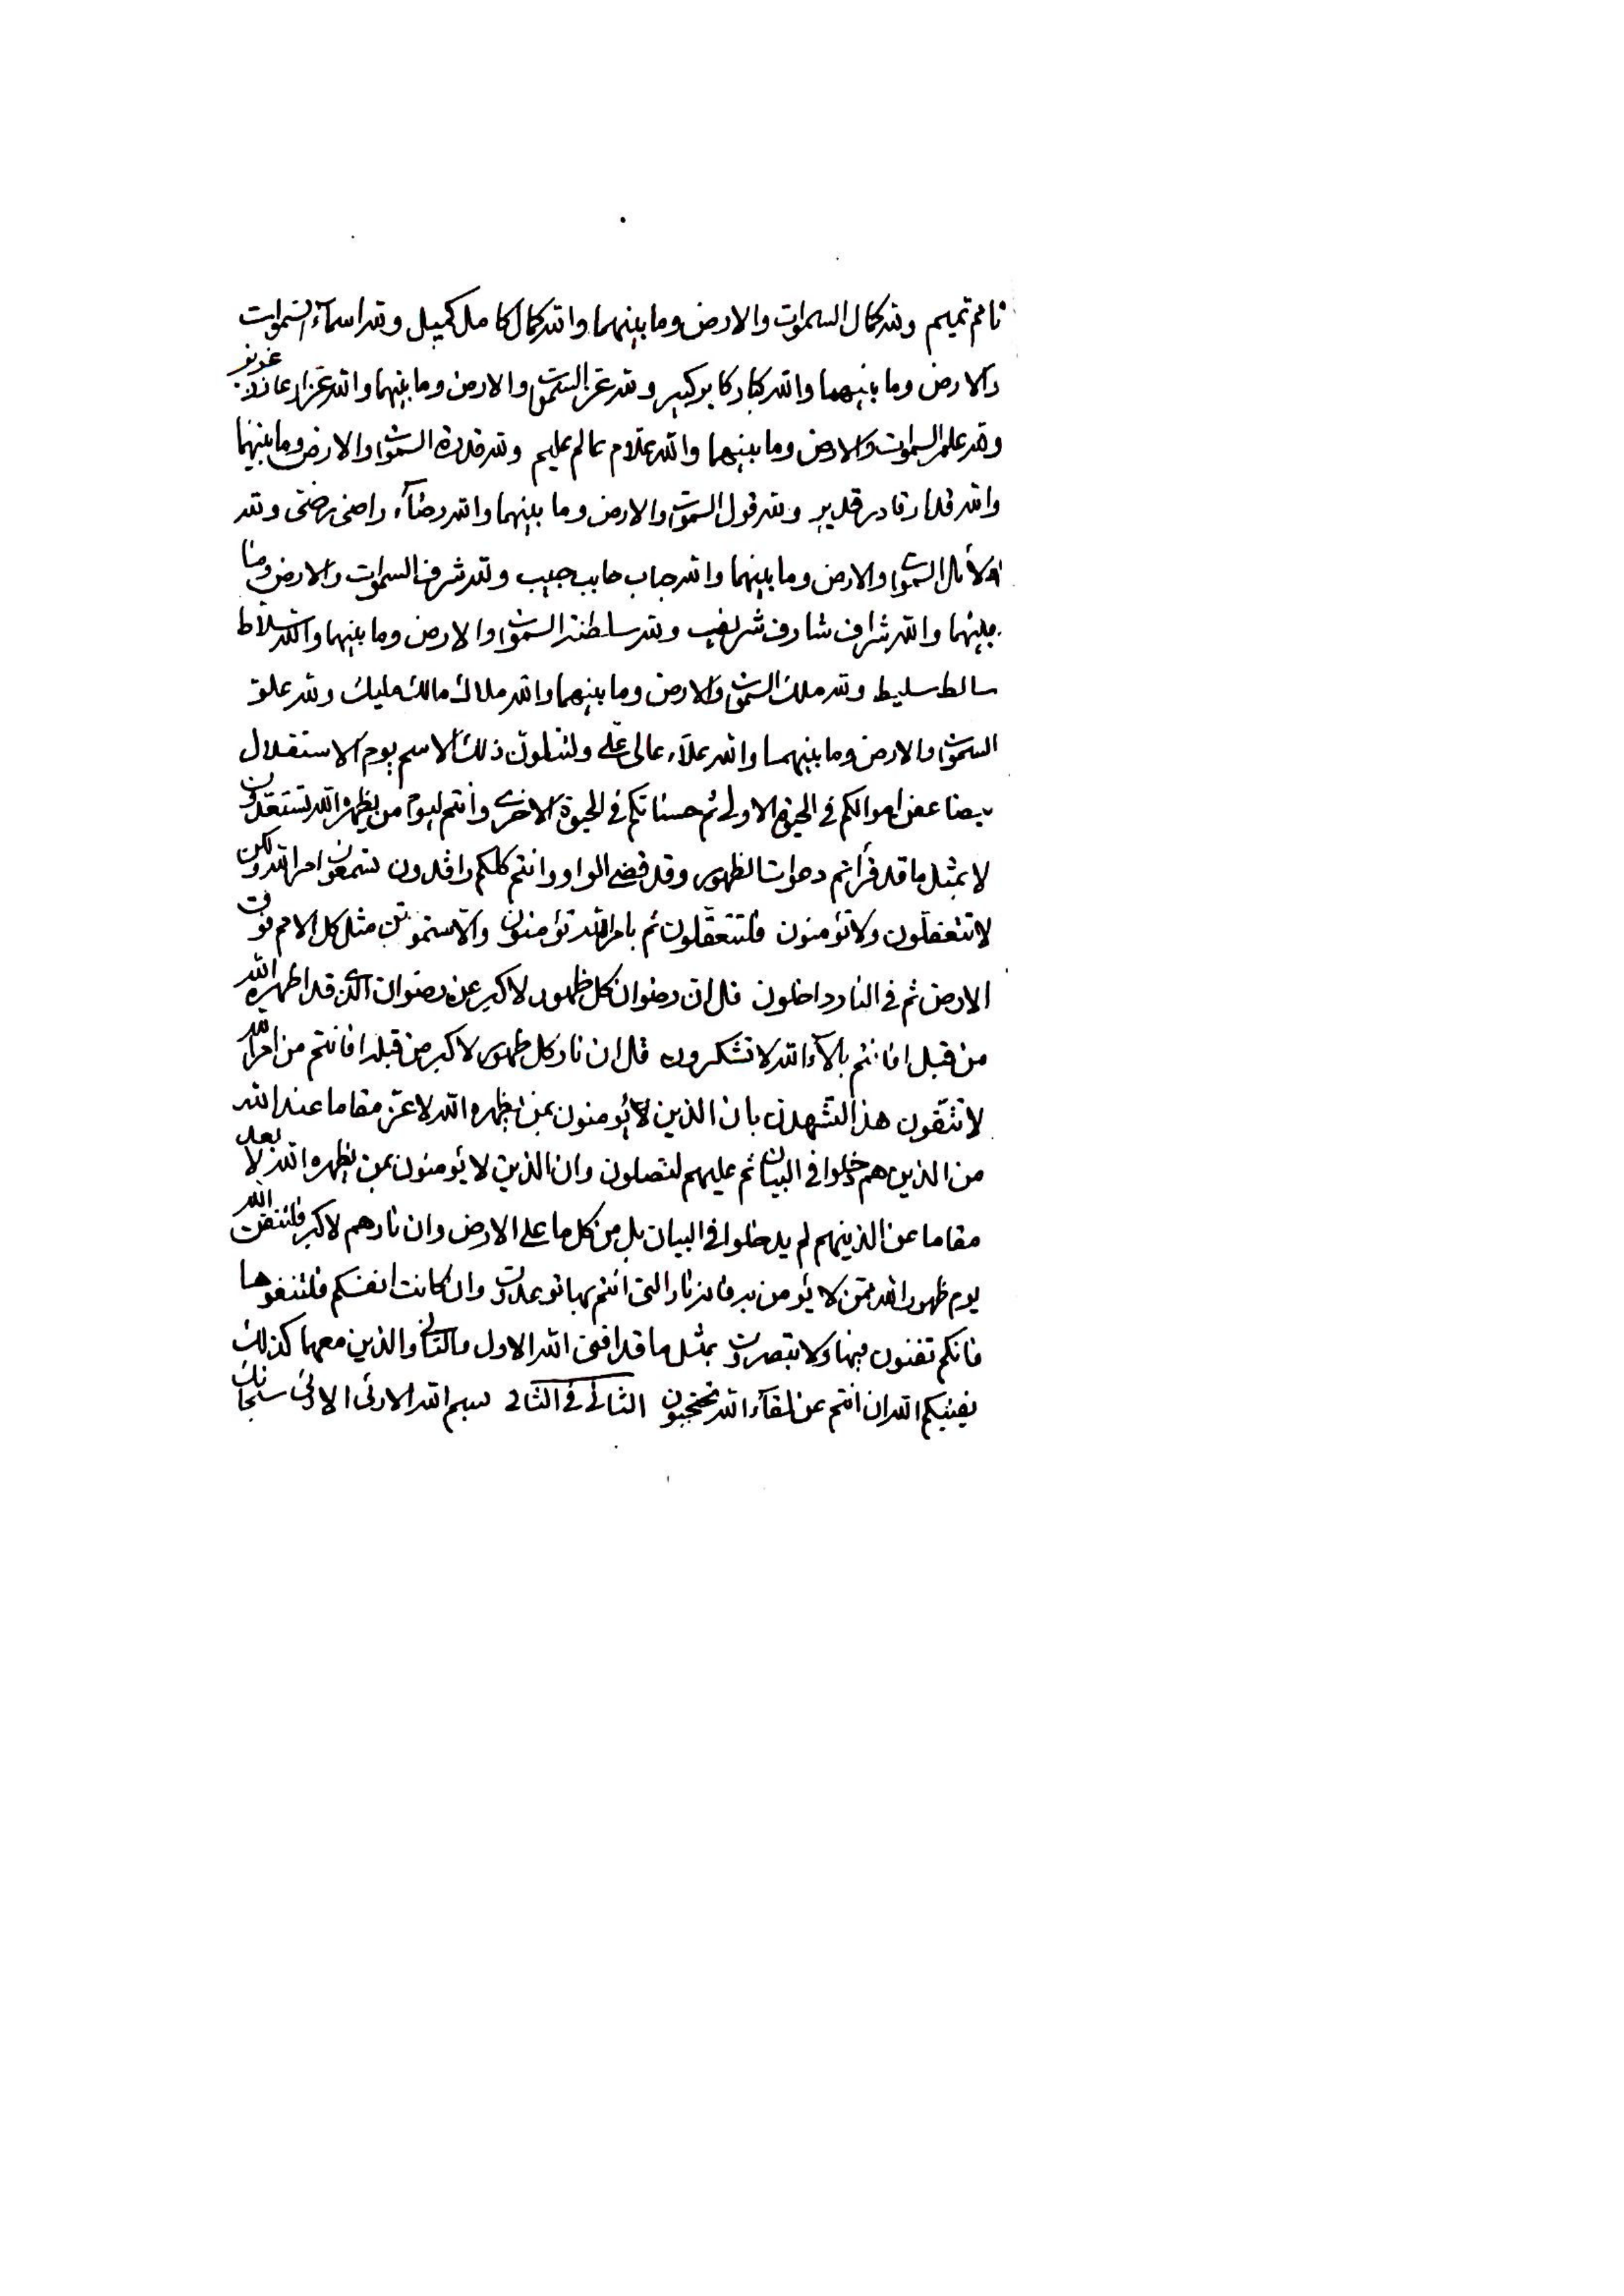 تامم تميم ولله كمال السموات والارض وما بينهما والله كمال كامل كميل ولله اسماء السموات
والارض وما بينهما والله كبار كابر كبير ولله عز السموات والارض وما بينهما والله عزاز عازز عزيز
ولله علم السموات والارض وما بينهما والله علام عالم عليم ولله قدرة السموات والارض وما بينهما
والله قدار قادر قدير ولله قول السموات والارض وما بينهما والله رضاء راضى رضى ولله
السموات والارض وما بينهما والله حباب حابب حبيب ولله شرف السموات والارض وما
بينهما والله شراف شارف شريف ولله سلطنة السموات والارض وما بينهما والله سلاط
سالط سليط ولله ملك السموات والارض وما بينهما والله ملاك مالك مليك ولله علو
السموات والارض وما بينهما والله علاء عالى على ولتتلون ذلك الاسم يوم الاستقلال
يضاعف اموالكم فى الحيوة الاولى ثم حسناتكم فى الحيوة الاخرى وانتم ليوم من يظهره الله لتستعدون
لا بمثل ما قد قرأتم دعوات الظهور وقد قضى الواو وانتم كلكم راقدون تسمعون امر الله ولكن
لا تتعقلون ولا تؤمنون فلتتعقلون ثم بامر الله تؤمنون والا ستموتن مثل كل الامم فوق
الارض ثم فى النار داخلون قل ان رضوان كل ظهور لاكبر عن رضوان الذى قد اظهره الله
من قبل افانتم بالاء الله لا تشكرون قل ان نار كل ظهور لاكبر من قبله افانتم من امر الله
لا تتقون هذا لتشهدن بان الذين لا يؤمنون بمن يظهره الله لاعز مقاما عند الله
من الذين هم دخلوا فى البيان ثم عليهم لتصلون وان الذين لا يؤمنون بمن يظهره الله لابعد
مقاما عن الذينهم لم يدخلوا فى البيان بل من كل ما على الارض وان نارهم لاكبر فلتتقن الله
يوم ظهور الله ممن لا يؤمن به فانه نار التى انتم بها توعدون وان كانت انفسكم فلتنفوها
فانكم تفنون فيها ولا تبصرون بمثل ما قد افنى الله الاول والثانى والذين معهما كذلك
يفنيكم الله ان انتم عن لقاء الله تحتجبون الثانى فى الثانى بسم الله الارئى الارئى سبحانك